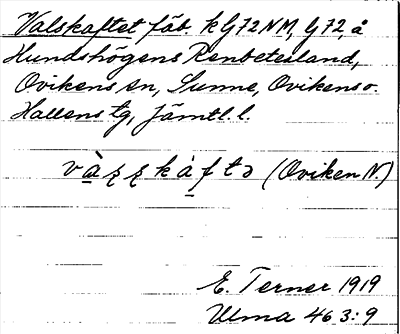 Valskaftet fäb. k G72 NM, G72, å
Hundshögens Renbetesland,
Ovikens sn, Sunne, Ovikens o.
Hallens tg, Jämtl. l.
(Oviken N.)
E. Terner 1919
Ulma 463:9